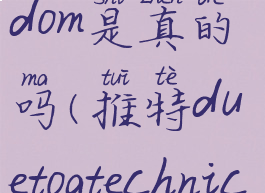 dom是真的
ma tuī tè
吗(推特du
etoatechnic